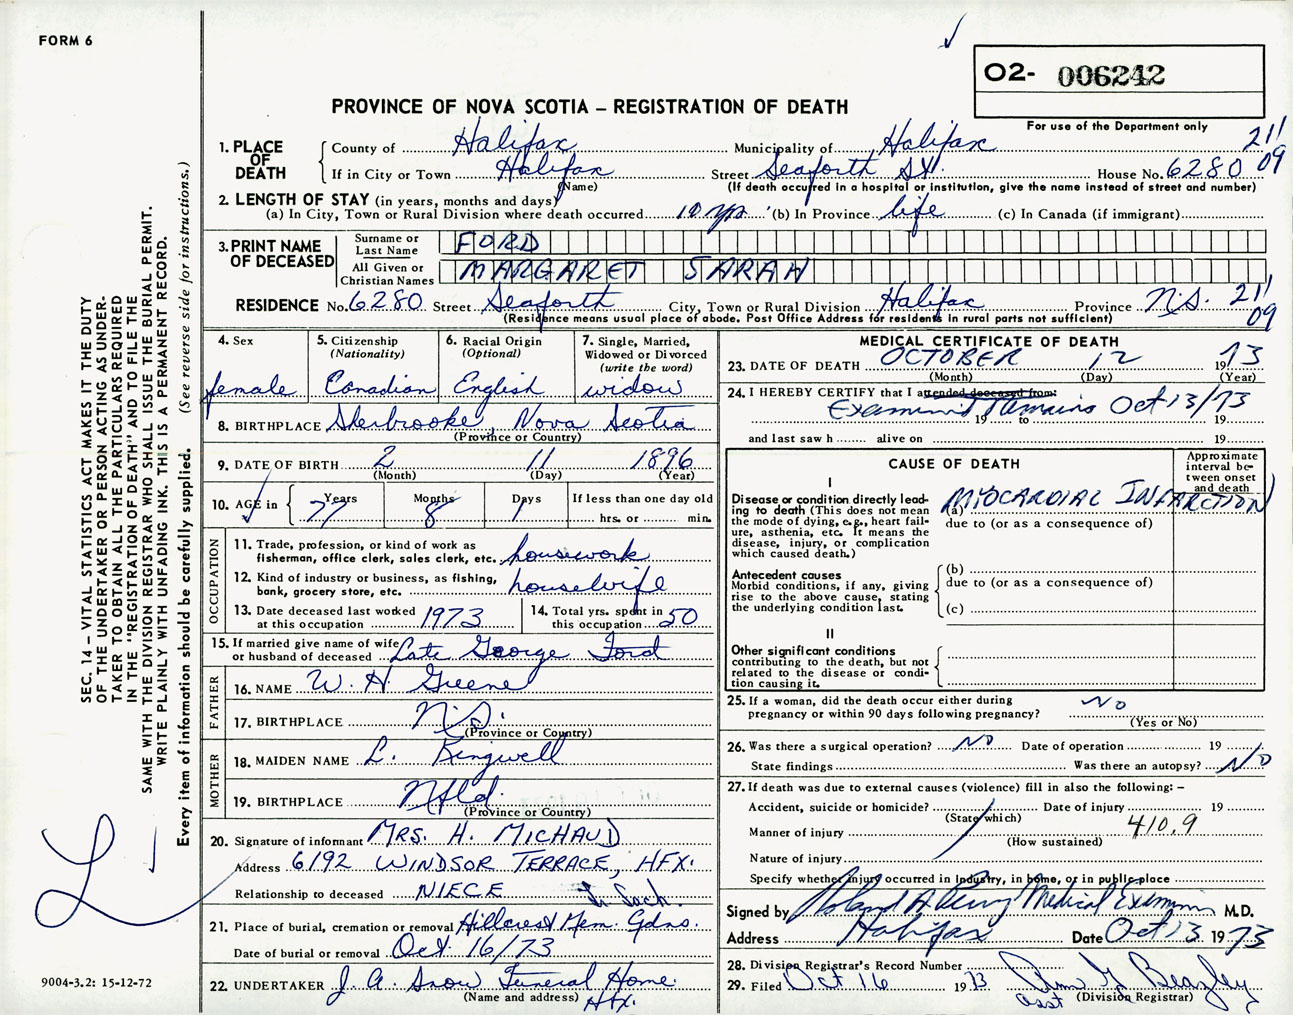 FORM 6
O2- 006242
PROVINCE OF NOVA SCOTIA – REGISTRATION OF DEATH
For use of the Department only
21'
09
1. PLACE OF DEATH
County of Halifax Municipality of Halifax
If in City or Town Halifax Street Seaforth St. House No. 6280
(Name) (If death occurred in a hospital or institution, give the name instead of street and number)
2. LENGTH OF STAY (in years, months and days)
(a) In City, Town or Rural Division where death occurred 10 yrs (b) In Province life (c) In Canada (if immigrant)
3. PRINT NAME OF DECEASED
Surname or Last Name FORD
All Given or Christian Names MARGARET SARAH
RESIDENCE No. 6280 Street Seaforth City, Town or Rural Division Halifax Province N.S. 21'
09
(Residence means usual place of abode. Post Office Address for residents in rural parts not sufficient)
4. Sex female
5. Citizenship (Nationality) Canadian
6. Racial Origin (Optional) English
7. Single, Married, Widowed or Divorced (write the word) widow
8. BIRTHPLACE Sherbrooke, Nova Scotia
(Province or Country)
9. DATE OF BIRTH 2 11 1896
(Month) (Day) (Year)
10. AGE in Years 77 Months 8 Days 1 If less than one day old
hrs. or min.
OCCUPATION
11. Trade, profession, or kind of work as
fisherman, office clerk, sales clerk, etc. housework
12. Kind of industry or business, as fishing,
bank, grocery store, etc. housewife
13. Date deceased last worked at this occupation 1973
14. Total yrs. spent in this occupation 50
15. If married give name of wife
or husband of deceased Late George Ford
FATHER
16. NAME W. H. Greene
17. BIRTHPLACE N.S.
(Province or Country)
MOTHER
18. MAIDEN NAME L. Bingwell
19. BIRTHPLACE Nfld.
(Province or Country)
20. Signature of informant MRS. H. MICHAUD
Address 6192 WINDSOR TERRACE, HFX.
Relationship to deceased NIECE
21. Place of burial, cremation or removal Hillcrest Mem. Gdns.
L. Sack.
Date of burial or removal Oct. 16/73
22. UNDERTAKER J. A. Snow Funeral Home.
(Name and address) Hfx.
MEDICAL CERTIFICATE OF DEATH
23. DATE OF DEATH OCTOBER 12 1973
(Month) (Day) (Year)
24. I HEREBY CERTIFY that I attended deceased from:
Examined Remains Oct 13/73
19 to 19
and last saw h alive on 19
CAUSE OF DEATH
Approximate interval between onset and death
I
Disease or condition directly leading to death (This does not mean the mode of dying, e.g., heart failure, asthenia, etc. It means the disease, injury, or complication which caused death.)
(a) MYOCARDIAL INFARCTION
due to (or as a consequence of)
Antecedent causes
Morbid conditions, if any, giving rise to the above cause, stating the underlying condition last.
(b)
due to (or as a consequence of)
(c)
II
Other significant conditions
contributing to the death, but not related to the disease or condition causing it.
25. If a woman, did the death occur either during
pregnancy or within 90 days following pregnancy? No
(Yes or No)
26. Was there a surgical operation? NO Date of operation 19
State findings Was there an autopsy? NO
27. If death was due to external causes (violence) fill in also the following: –
Accident, suicide or homicide? Date of injury 19
(State which)
Manner of injury 410.9
(How sustained)
Nature of injury
Specify whether injury occurred in industry, in home, or in public place
Signed by Roland A Perry Medical Examiner M.D.
Address Halifax Date Oct 13 1973
28. Division Registrar's Record Number
29. Filed Oct 16 1973 Ann G Beazley
asst (Division Registrar)
SEC. 14 – VITAL STATISTICS ACT MAKES IT THE DUTY
OF THE UNDERTAKER OR PERSON ACTING AS UNDER-
TAKER TO OBTAIN ALL THE PARTICULARS REQUIRED
IN THE "REGISTRATION OF DEATH" AND TO FILE THE
SAME WITH THE DIVISION REGISTRAR WHO SHALL ISSUE THE BURIAL PERMIT.
WRITE PLAINLY WITH UNFADING INK. THIS IS A PERMANENT RECORD.
Every item of information should be carefully supplied. (See reverse side for instructions.)
9004-3.2: 15-12-72